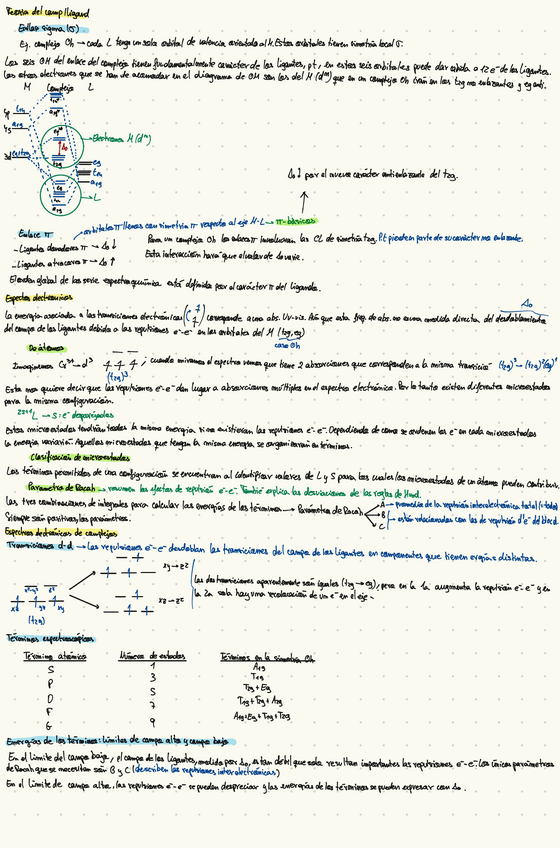 Teoría del campo ligand
Enllaç sigma (σ)
Eg. complejo Oh → cada L tenga un solo orbital de valencia orientado al M. Estos orbitales tienen simetría local σ.
Los seis OM del enlace del complejo tienen fundamentalmente carácter de los ligantes, pt, en estos seis orbitales puede dar cabida a 12 e⁻ de los ligantes.
Los otros electrones que se han de acomodar en el diagrama de OM son los del M (dⁿ) que en un complejo Oh irán en los t2g no enlazantes y eg anti.
M Complejo L
Electrones M (dⁿ)
Δo
eg
t1u
a1g
t2g
L
Δo↓ por el nuevo carácter antienlazante del t2g.
Enlace π
orbitales π llenos con simetría π respecto al eje M-L → π-básicos
- Ligantes donadores π → Δo ↓
- Ligantes atractores π → Δo ↑
Para un complejo Oh los enlaces π involucran las CL de simetría t2g. P.t pierden parte de su carácter no enlazante.
Esta interacción hará que el valor de Δo varíe.
El orden global de las serie espectroquímica está definida por el carácter π del ligando.
Espectros electrónicos
La energía asociada a las transiciones electrónicas corresponde a una abs. UV-vis. Aún que esta freq. de abs. no es una medida directa del desdoblamiento
Δo
del campo de los ligantes debido a las repulsiones e⁻-e⁻ en los orbitales del M (t2g, eg)
caso Oh
De átomos
Imaginemos Cr³⁺ → d³ ; cuando miramos el espectro vemos que tiene 2 absorciones que corresponden a la misma transición (t2g)³ → (t2g)²(eg)¹
(t2g)³
Esto nos quiere decir que las repulsiones e⁻-e⁻ dan lugar a absorciones múltiples en el espectro electrónico. Por lo tanto existen diferentes microestados
para la misma configuración.
2S+1L → S: e⁻ desapareados
Estos microestados tendrían todos la misma energía si no existieran las repulsiones e⁻-e⁻. Dependiendo de como se ordenen los e⁻ en cada microestados
la energía variarán. Aquellos microestados que tengan la misma energía se organizarán en términos.
Clasificación de microestados
Los términos permitidos de una configuración se encuentran al identificar valores de L y S para los cuales los microestados de un átomo pueden contribuir.
Parámetros de Racah → resumen los efectos de repulsión e⁻-e⁻. También explica las desviaciones de las reglas de Hund.
Las tres combinaciones de integrales para calcular las energías de los términos → Parámetros de Racah
A → promedio de la repulsión interelectrónica total (total)
B
C
→ están relacionadas con las de repulsión d'e⁻ del bloc d.
Siempre son positivas los parámetros.
Espectros electrónicos de complejos
Transiciones d-d → las repulsiones e⁻-e⁻ desdoblan las transiciones del campo de los ligantes en componentes que tienen energías distintas.
xy → z²
xz → z²
xz yz xy
(t2g)
Las dos transiciones aparentemente son iguales (t2g → eg), pero en la 1a augmenta la repulsión e⁻-e⁻ y en
la 2a solo hay una recolocación de un e⁻ en el eje.
Términos espectroscópicos
Término atómico Número de estados Términos en la simetría Oh
S 1 A1g
P 3 T1g
D 5 T2g + Eg
F 7 T1g + T2g + A2g
G 9 A1g + Eg + T1g + T2g
Energías de los términos: Límites de campo alto y campo bajo
En el límite del campo bajo, el campo de los ligantes, medido por Δo, es tan débil que solo resultan importantes las repulsiones e⁻-e⁻. Los únicos parámetros
de Racah que se necesitan son B y C (describen las repulsiones interelectrónicas)
En el límite de campo alto, las repulsiones e⁻-e⁻ se pueden despreciar y las energías de los términos se pueden expresar con Δo.